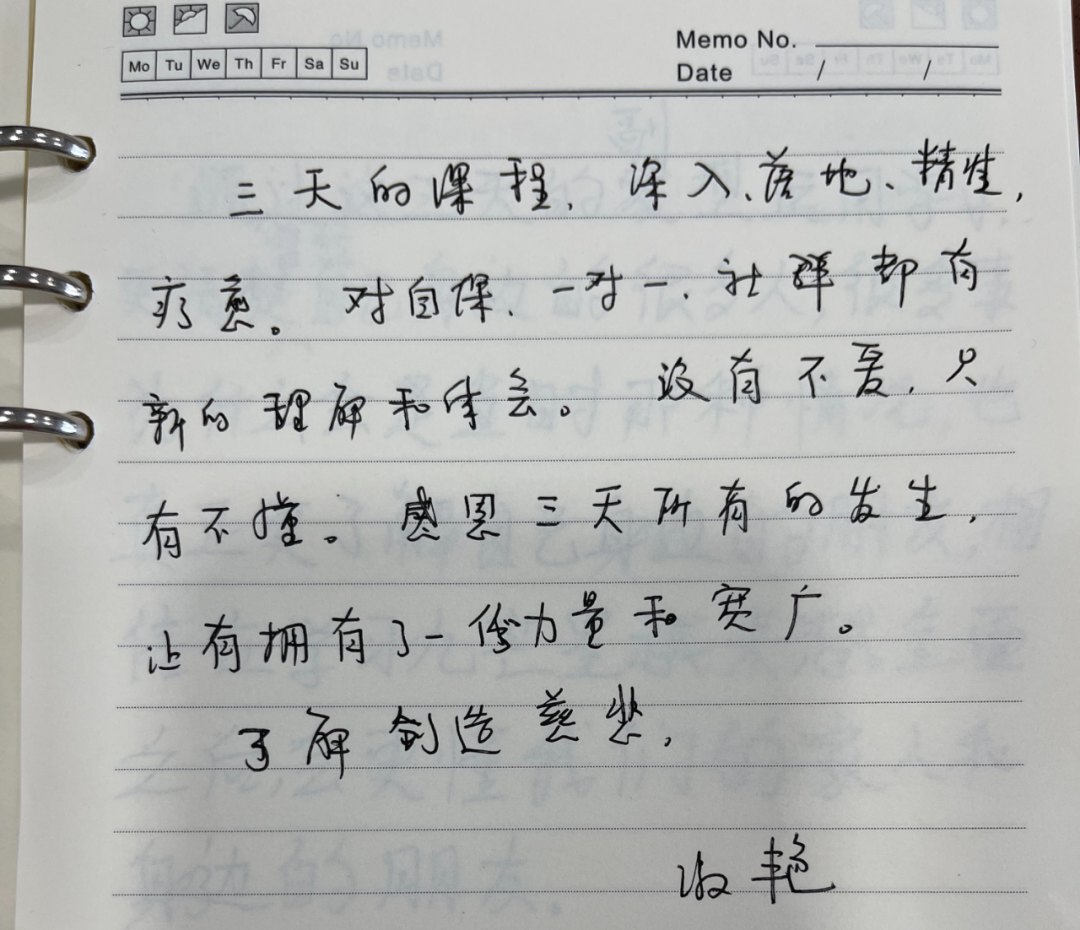 Memo No.
Mo Tu We Th Fr Sa Su
Date / /
三天的课程，深入、落地、精准，
疗愈。对自保、一对一、社群都有
新的理解和体会。没有不爱，只
有不懂。感恩三天所有的发生，
让有拥有了一份力量和宽广。
了解创造慈悲，
淑艳